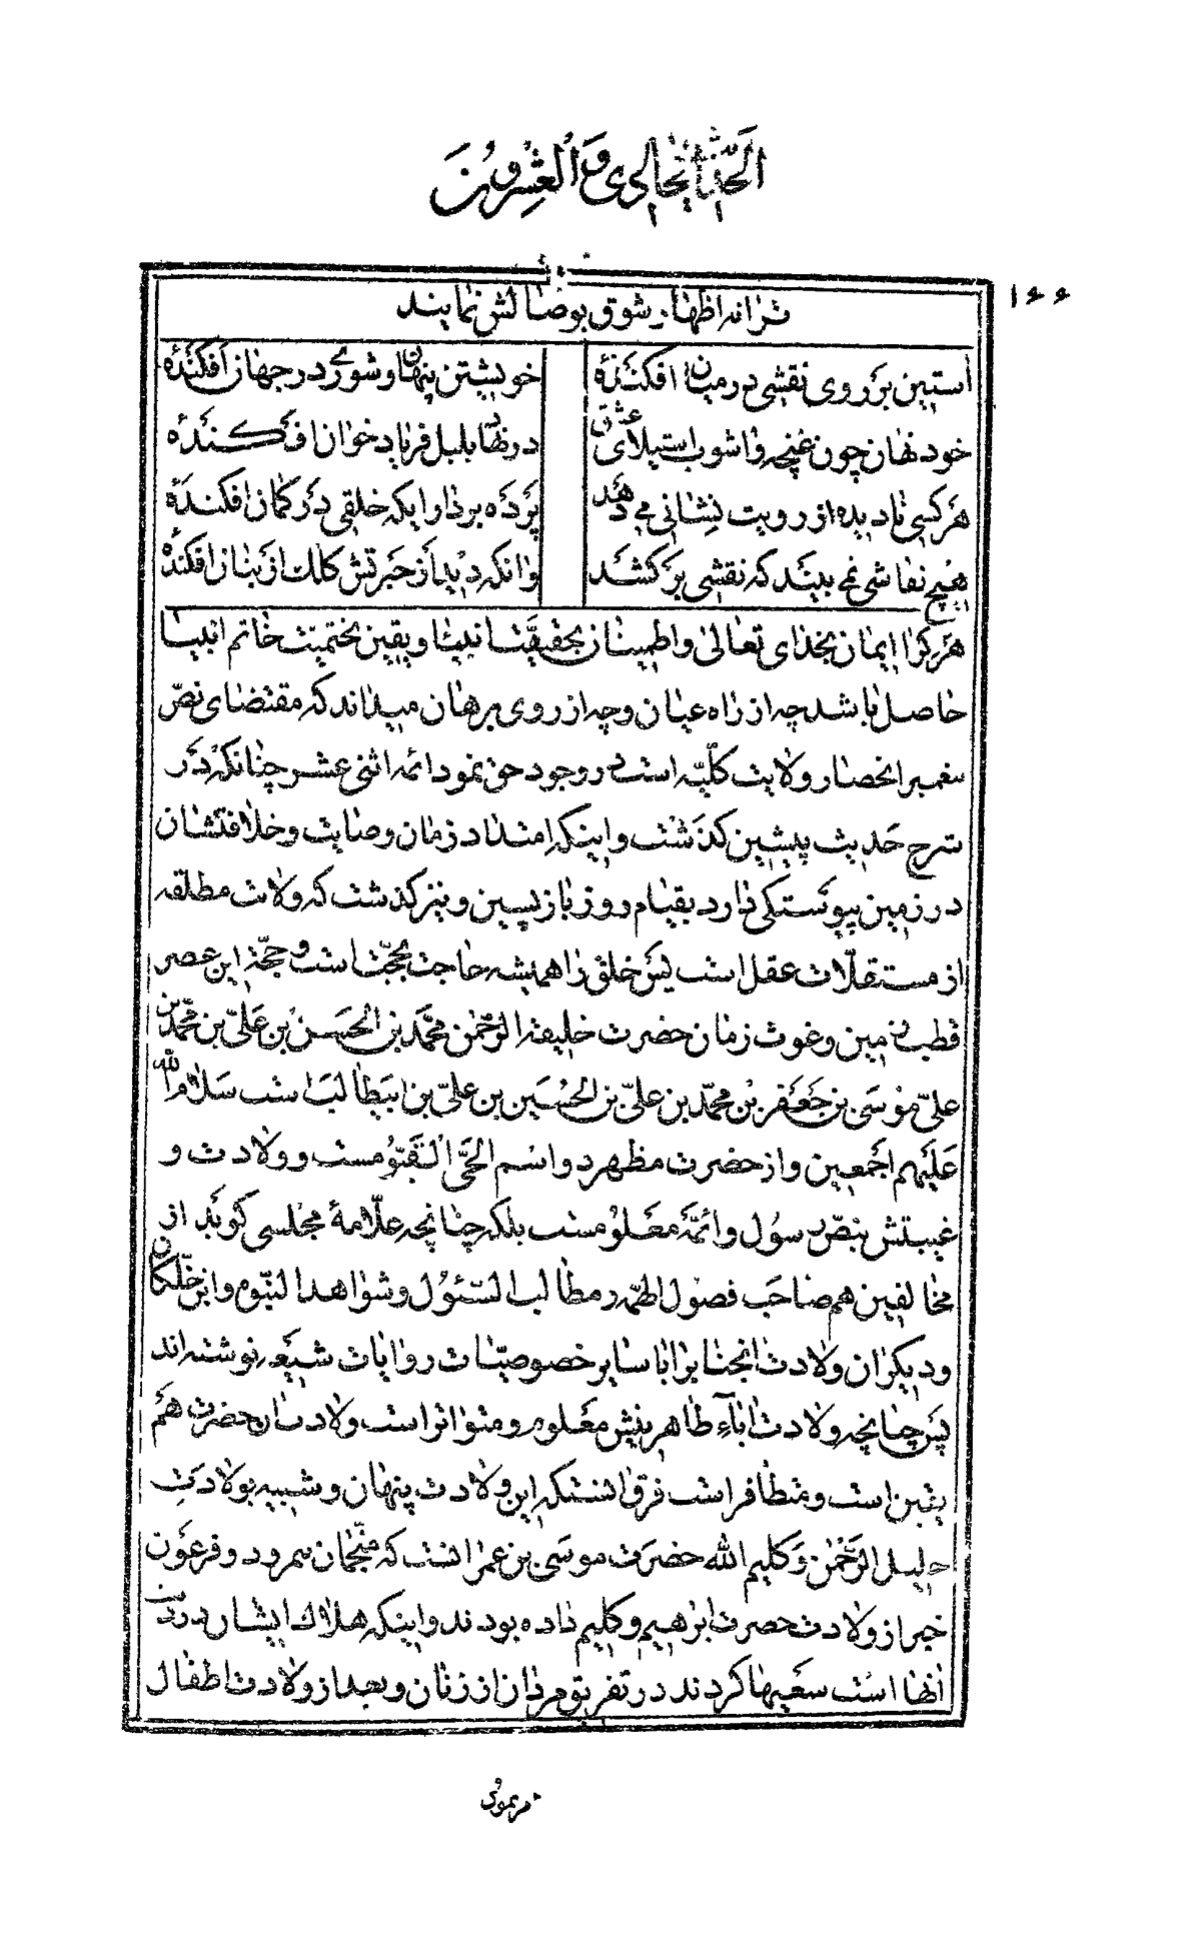 الحدیث الحادی و العشرون
۱۶۶
ترانه اظهار شوق بوصالش نمایند
آستین بر روی نقشی در میان افکندهٔ خویشتن پنهان و شوری در جهان افکندهٔ
خود نهان چون غنچه و اشوب استیلای عشق در نهاد بلبل فریاد خوان افکندهٔ
هر کسی نادیده از رویت نشانی می دهد پرده بردار ایکه خلقی در کمان افکندهٔ
هیچ نقاشی نمی بیند که نقشی برکشد وانکه دید از حیرتش کلک از بنان افکندهٔ
هر کرا ایمان بخدای تعالی و اطمینان بحقیقت انبیا و یقین بختمیت خاتم انبیا
حاصل باشد چه از راه عیان و چه از روی برهان میداند که مقتضای نصّ
پیغمبر انحصار ولایت کلّیّه است در وجود حق نمود ائمه اثنی عشر چنانکه در
شرح حدیث پیشین کذشت و اینکه امتداد زمان وصایت و خلافتشان
در زمین پیوستکی دارد بقیام روز بازپسین و نیز کذشت که ولایت مطلقه
از مستقلّات عقل است پس خلق را همیشه حاجت بحجّت است و حجّة این عصر
قطب زمین و غوث زمان حضرت خلیفة الرّحمن محمّد بن الحسن بن علیّ بن محمّد بن
علیّ موسی بن جعفر بن محمّد بن علیّ بن الحسین بن علیّ بن ابیطالب است سلام الله
علیهم اجمعین و از حضرت مظهر دو اسم الحیّ القیّومست و ولادت و
غیبتش بنصّ رسول و ائمّه معلومست بلکه چنانچه علّامهٔ مجلسی کوید از
مخالفین هم صاحب فصول المهمّه و مطالب السئول و شواهد النبّوه و ابن خلّکان
و دیکران ولادت انجناب را با سایر خصوصیّات روایات شیعه نوشته اند
پس چنانچه ولادت اباء طاهرینش معلوم و متواتر است ولادت انحضرت هم
یقین است و متظافر است فرق انستکه این ولادت پنهان و شبیه بولادت
خلیل الرّحمن و کلیم الله حضرت موسی بن عمرانست که منجّمان نمرود و فرعون
خبر از ولادت حضرت ابرهیم و کلیم داده بودند و اینکه هلاک ایشان در دست
انها است سعیها کردند در تفریق مردان از زنان و بعد از ولادت اطفال